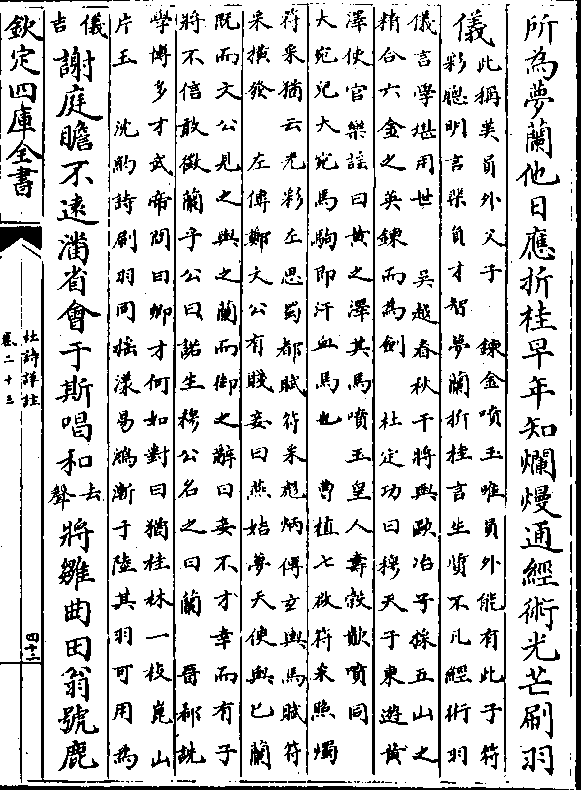 所為夢蘭他日應折桂早年知爛熳通經術光芒刷羽
儀
此稱英員外父子 鍊金噴玉唯員外能有此子符
彩聰明言與負才智夢蘭折桂言生質不凡經術羽
儀言學堪用世 吳越春秋干將與歐冶子採五山之
精合六金之英鍊而為劍 杜定功曰穆天子東遊黃
澤使官樂謠曰黃之澤其馬噴玉皇人壽穀歕噴同
大宛兒大宛馬駒即汗血馬也 曹植七啟符采照燭
符采猶云光彩左思蜀都賦符采彪炳傅玄輿馬賦符
采橫發 左傳鄭文公有賤妾曰燕姞夢天使與已蘭
既而文公見之與之蘭而御之辭曰妾不才幸而有子
將不信敢徵蘭乎公曰諾生穆公名之曰蘭 晉郤詵
學博多才武帝問曰卿才何如對曰猶桂林一枝崑山
片玉 沈約詩刷羽同搖漾易鴻漸于陸其羽可用為
儀
吉
謝庭瞻不遠潘省會于斯唱和
去
聲
將雛曲田翁號鹿
欽定四庫全書
杜詩詳註
卷二十三
四十二